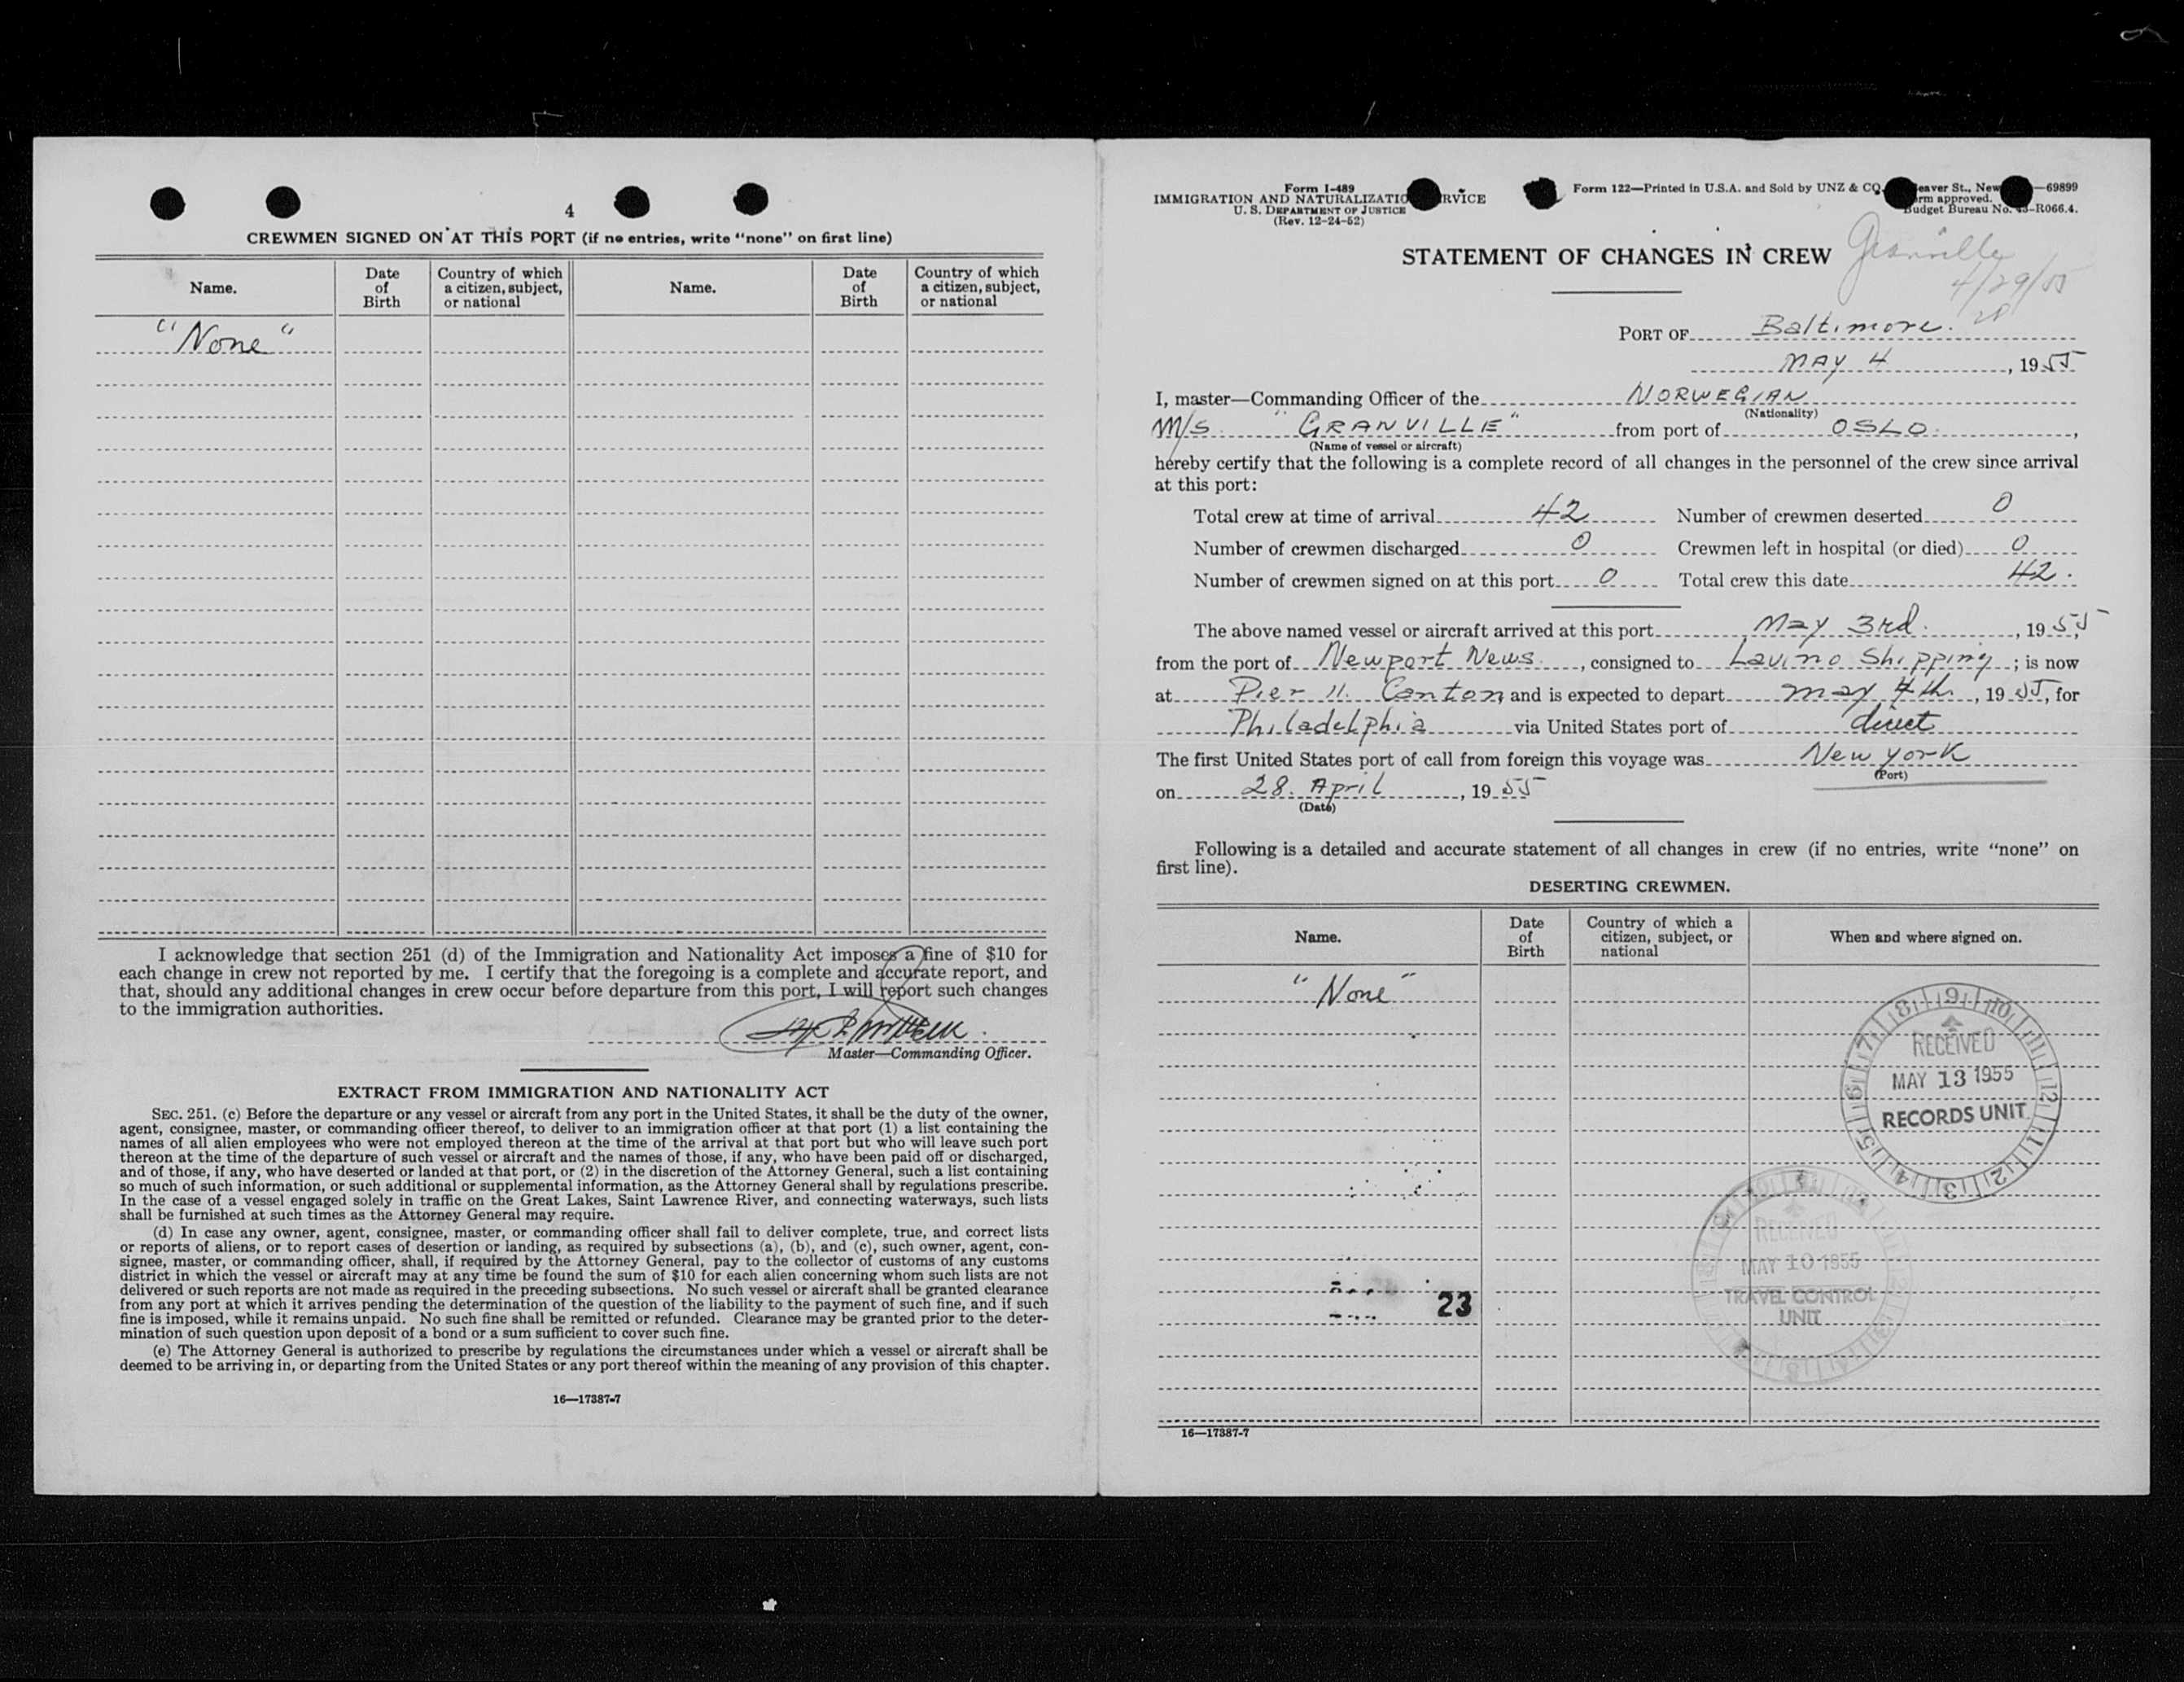 4
CREWMEN SIGNED ON AT THIS PORT (if no entries, write “none” on first line)
Name. Date of Birth Country of which a citizen, subject, or national Name. Date of Birth Country of which a citizen, subject, or national
"None"
I acknowledge that section 251 (d) of the Immigration and Nationality Act imposes a fine of $10 for
each change in crew not reported by me. I certify that the foregoing is a complete and accurate report, and
that, should any additional changes in crew occur before departure from this port, I will report such changes
to the immigration authorities.
Master—Commanding Officer.
EXTRACT FROM IMMIGRATION AND NATIONALITY ACT
SEC. 251. (c) Before the departure or any vessel or aircraft from any port in the United States, it shall be the duty of the owner,
agent, consignee, master, or commanding officer thereof, to deliver to an immigration officer at that port (1) a list containing the
names of all alien employees who were not employed thereon at the time of the arrival at that port but who will leave such port
thereon at the time of the departure of such vessel or aircraft and the names of those, if any, who have been paid off or discharged,
and of those, if any, who have deserted or landed at that port, or (2) in the discretion of the Attorney General, such a list containing
so much of such information, or such additional or supplemental information, as the Attorney General shall by regulations prescribe.
In the case of a vessel engaged solely in traffic on the Great Lakes, Saint Lawrence River, and connecting waterways, such lists
shall be furnished at such times as the Attorney General may require.
(d) In case any owner, agent, consignee, master, or commanding officer shall fail to deliver complete, true, and correct lists
or reports of aliens, or to report cases of desertion or landing, as required by subsections (a), (b), and (c), such owner, agent, con-
signee, master, or commanding officer, shall, if required by the Attorney General, pay to the collector of customs of any customs
district in which the vessel or aircraft may at any time be found the sum of $10 for each alien concerning whom such lists are not
delivered or such reports are not made as required in the preceding subsections. No such vessel or aircraft shall be granted clearance
from any port at which it arrives pending the determination of the question of the liability to the payment of such fine, and if such
fine is imposed, while it remains unpaid. No such fine shall be remitted or refunded. Clearance may be granted prior to the deter-
mination of such question upon deposit of a bond or a sum sufficient to cover such fine.
(e) The Attorney General is authorized to prescribe by regulations the circumstances under which a vessel or aircraft shall be
deemed to be arriving in, or departing from the United States or any port thereof within the meaning of any provision of this chapter.
16—17387-7
Form I-489
IMMIGRATION AND NATURALIZATIO RVICE
U. S. DEPARTMENT OF JUSTICE
(Rev. 12-24-52)
Form 122—Printed in U.S.A. and Sold by UNZ & CO. eaver St., New —69899
rm approved.
Budget Bureau No. 43-R066.4.
STATEMENT OF CHANGES IN CREW
Granville
4/29/55
PORT OF Baltimore.
MAY 4, 1955
I, master—Commanding Officer of the NORWEGIAN
(Nationality)
M/S "GRANVILLE" from port of OSLO.,
(Name of vessel or aircraft)
hereby certify that the following is a complete record of all changes in the personnel of the crew since arrival
at this port:
Total crew at time of arrival 42 Number of crewmen deserted 0
Number of crewmen discharged 0 Crewmen left in hospital (or died) 0
Number of crewmen signed on at this port 0 Total crew this date 42.
The above named vessel or aircraft arrived at this port May 3rd., 1955,
from the port of Newport News, consigned to Lavino Shipping; is now
at Pier 11. Canton, and is expected to depart May 4th., 1955, for
Philadelphia via United States port of direct
The first United States port of call from foreign this voyage was New York
(Port)
on 28. April, 1955
(Date)
Following is a detailed and accurate statement of all changes in crew (if no entries, write “none” on
first line).
DESERTING CREWMEN.
Name. Date of Birth Country of which a citizen, subject, or national When and where signed on.
"None"
8 9 10 11 12 1 2 3 4 5 6 7
RECEIVED
MAY 13 1955
RECORDS UNIT
RECEIVED
MAY 10 1955
TRAVEL CONTROL
UNIT
23
16—17387-7